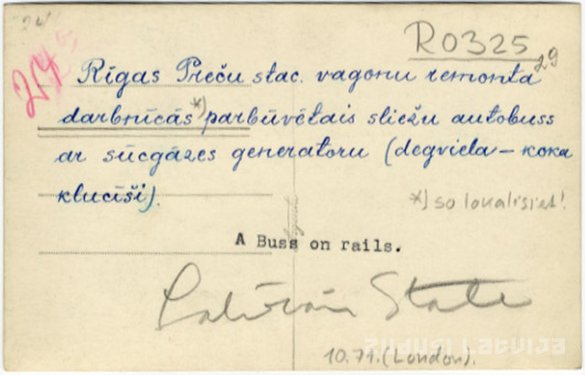 R0325
29
Rīgas Preču stac. vagonu remonta
darbnīcās *) pārbūvētais sliežu autobuss
ar sūcgāzes generatoru (degviela – koka
klucīši).
*) so lokalisiet!
A Buss on rails.
Latvian State
zudusi Latvija
10.71. (London).